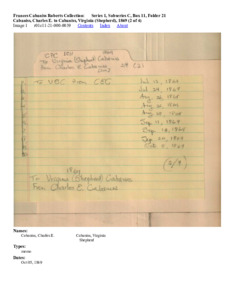 Frances Cabaniss Roberts Collection: Series 1, Subseries C, Box 11, Folder 21
Cabaniss, Charles E. to Cabaniss, Virginia (Shepherd), 1869 (2 of 4)
Image 1
Contents Index About
1869
To Virginia Shepherd Cabaniss
From Charles E. Cabaniss
To VBC from CEC
Jul 13, 1869
Jul 24, 1869
Aug 1869
Aug 1869
Aug 1869
Sep 11, 1869
Sep 18, 1869
Sep 1869
Oct 5, 1869
(2/4)
1869
To Virginia (Shepherd) Cabaniss
From Charles E. Cabaniss
Names:
Cabaniss, Charles E.
Cabaniss, Virginia
Shepherd
Types:
Dates:
Oct 05, 1869